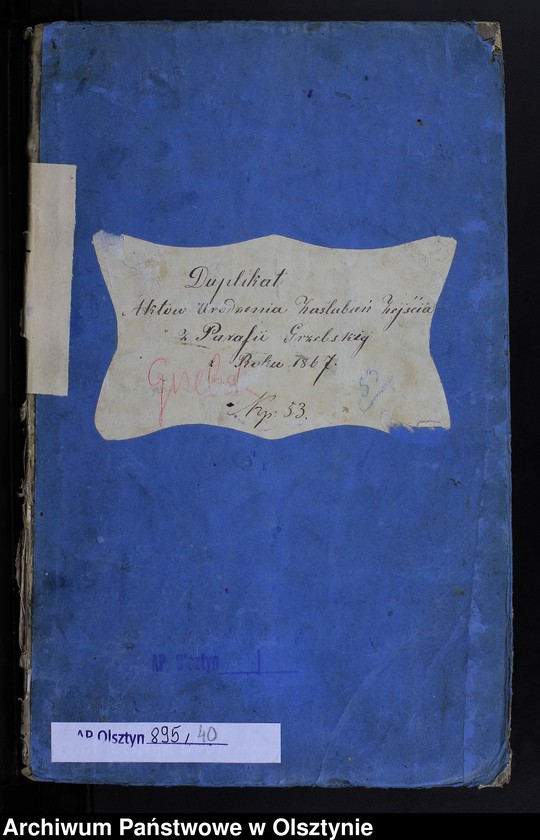 Duplikat
Aktów Urodzenia Zaślubin Zejścia
z Parafii Grzebskiej
z Roku 1867.
53
Np: 53.
AP Olsztyn
AP Olsztyn 895/40
Archiwum Państwowe w Olsztynie